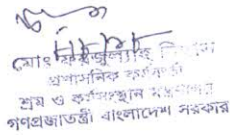 মোঃ
প্রশাসনিক কর্মকর্তা
শ্রম ও কর্মসংস্থান মন্ত্রণালয়
গণপ্রজাতন্ত্রী বাংলাদেশ সরকার